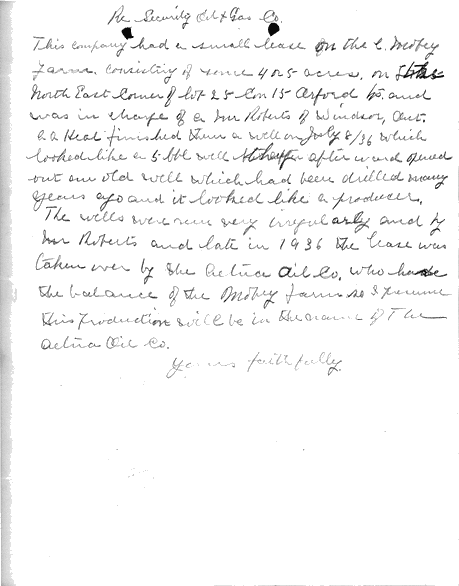 Re Security Oil & Gas Co.
This company had a small lease on the C. Mobey
Farm. consisting of some 4 or 5 acres. on
North East Corner of lot 25 Con 15 Orford Tp. and
was in charge of a Mr Roberts of Windsor, Ont.
finished them a well on July 8/36 which
looked like a 5 bbl well afterward opened
out an old well which had been drilled many
years ago and it looked like a producer.
The wells were run very irregularly and by
Mr Roberts and late in 1936 the lease was
taken over by the Aetna Oil Co. who have
the balance of the Mobey farm so I presume
this production will be in the name of The
Aetna Oil Co.
Yours faithfully.